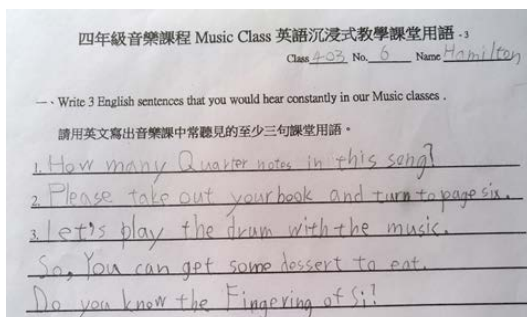 四年級音樂課程 Music Class 英語沉浸式教學課堂用語 - 3
Class 403 No. 6 Name Hamilton
一、Write 3 English sentences that you would hear constantly in our Music classes .
請用英文寫出音樂課中常聽見的至少三句課堂用語。
1. How many Quarter notes in this song?
2. Please take out your book and turn to page six.
3. Let's play the drum with the music.
So, You can get some dessert to eat.
Do you know the Fingering of Si?